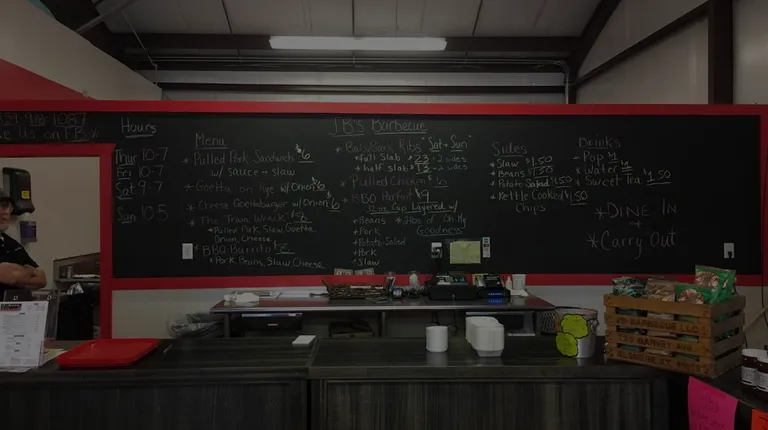 Like Us on FB
Hours
Thur 10-7
Fri 10-7
Sat 9-7
Sun 10-5
Menu
* Pulled Pork Sandwich $6
w/ sauce + slaw
* Goetta on Rye w/ Onion $6
* Cheese Goettaburger w/ Onion $6
* The Train Wreck $8
* Pulled Pork, Slaw, Goetta,
Onion, Cheese
* BBQ Burrito $8
* Pork, Beans, Slaw, Cheese
JB's Barbecue
* BabyBack Ribs "Sat + Sun"
* full Slab $23 + 2 sides
* half slab $13 + 2 sides
* Pulled Chicken $6
* BBQ Parfait $9
Layered w/
* Beans
* Pork
* Potato Salad
* Pork
* Slaw
* 2lbs of Oh My
Goodness
Sides
* Slaw $1.50
* Beans $1.50
* Potato Salad $1.50
* Kettle Cooked $1.50
Chips
Drinks
* Pop $1
* Water $1
* Sweet Tea $1.50
* Dine In
+
* Carry Out